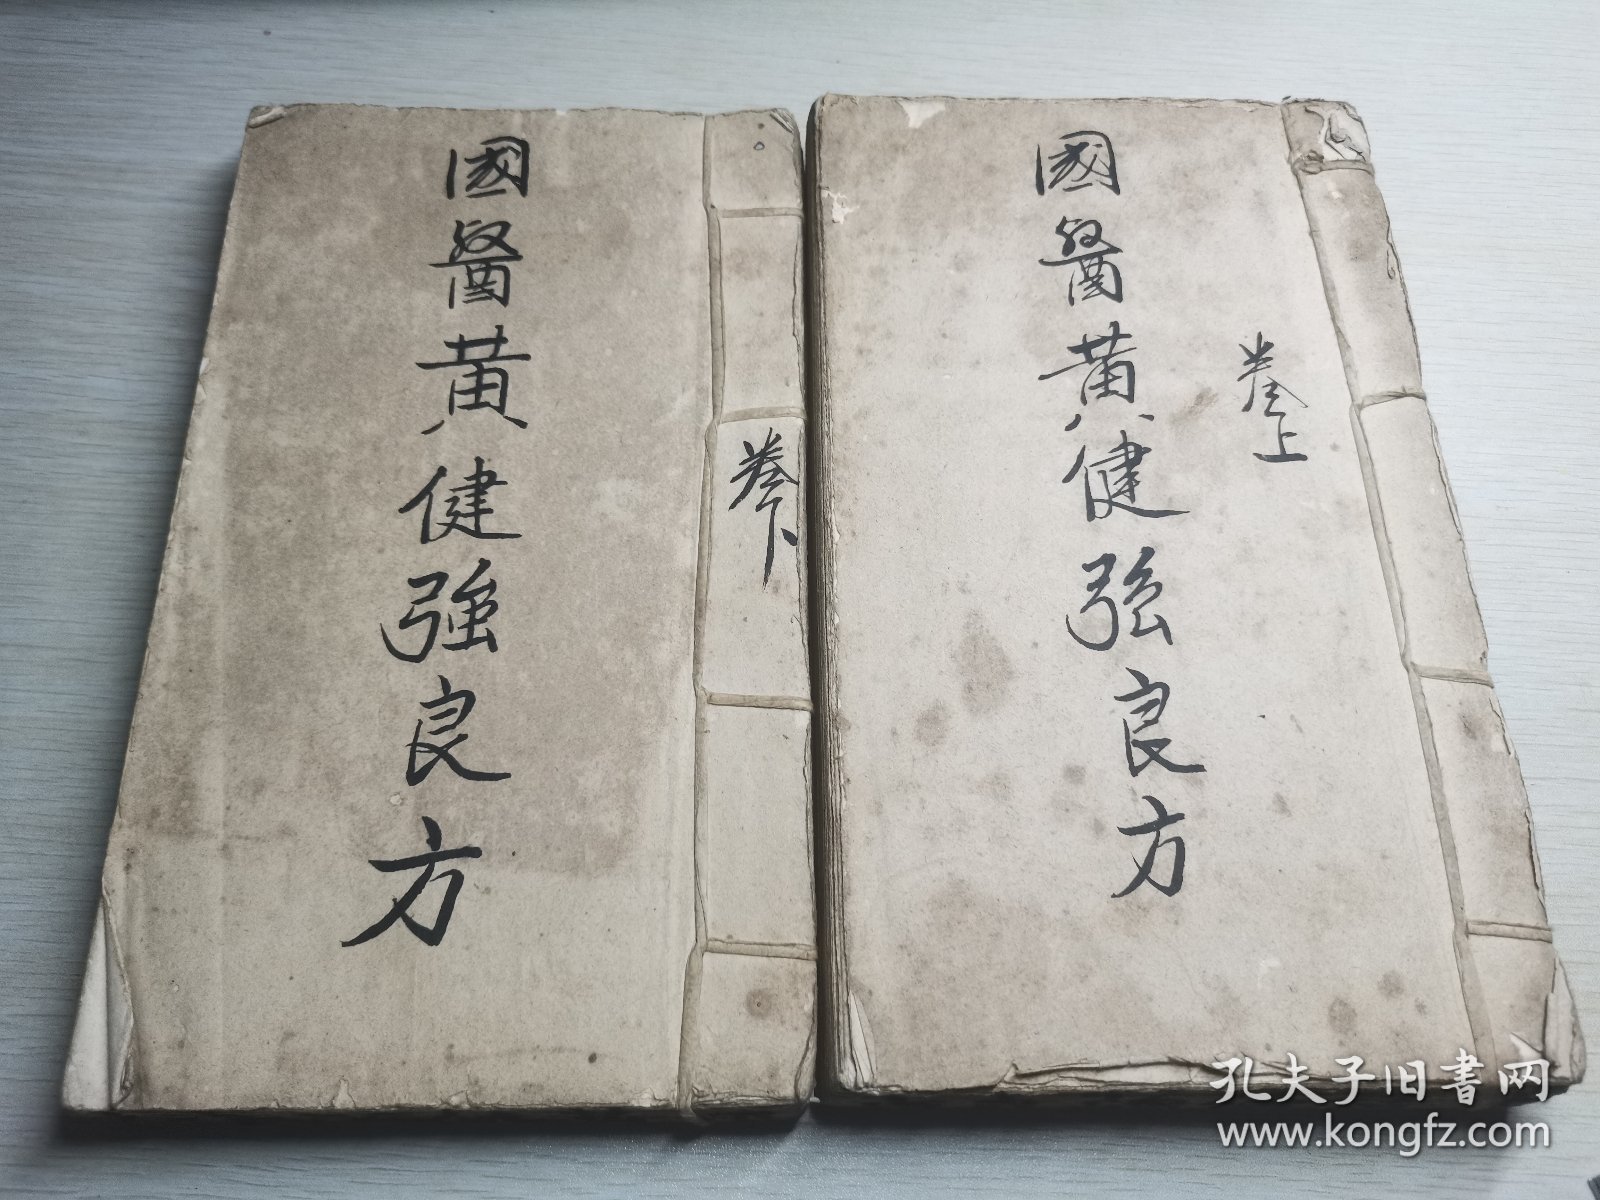 國醫黄健強良方
卷上
國醫黄健強良方
卷下
孔夫子旧書网
www.kongfz.com